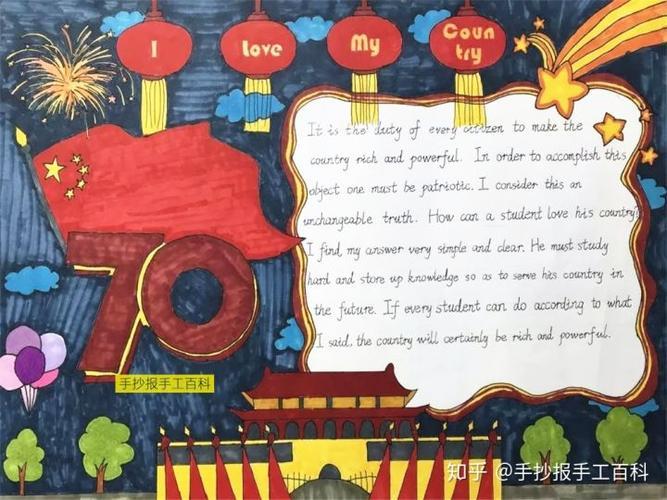 I
Love
My
Coun
try
It is the duty of every citizen to make the
country rich and powerful. In order to accomplish this
object one must be patriotic. I consider this an
unchangeable truth. How can a student love his country?
I find my answer very simple and clear. He must study
hard and store up knowledge so as to serve his country in
the future. If every student can do according to what
I said, the country will certainly be rich and powerful.
70
手抄报手工百科
知乎 @手抄报手工百科